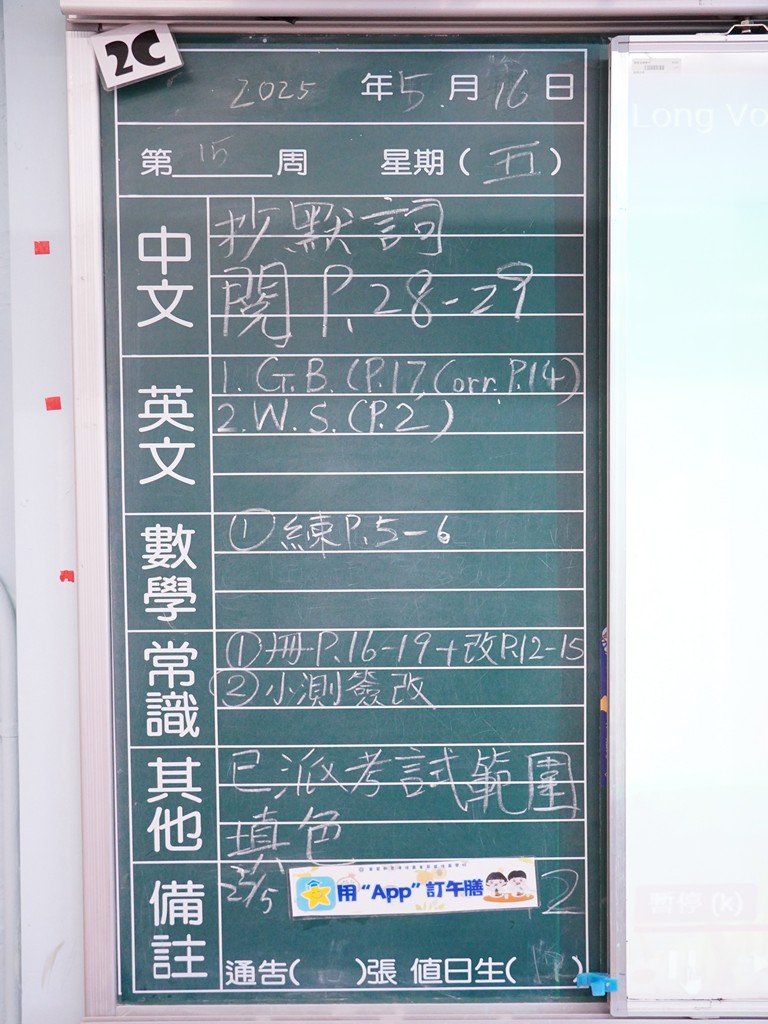 2C
2025 年 5 月 16 日
第 15 周 星期 ( 五 )
中文
抄默詞
閱 P. 28-29
英文
1. G.B. (P.17, Corr. P.14)
2. W.S. (P.2)
數學
① 練 P.5-6
常識
① 冊 P.16-19 + 改 P.12-15
② 小測簽改
其他
已派考試範圍
填色
備註
23/5
用 “App” 訂午膳
2
通告( )張 值日生( )
Long Vo
暫停 (k)